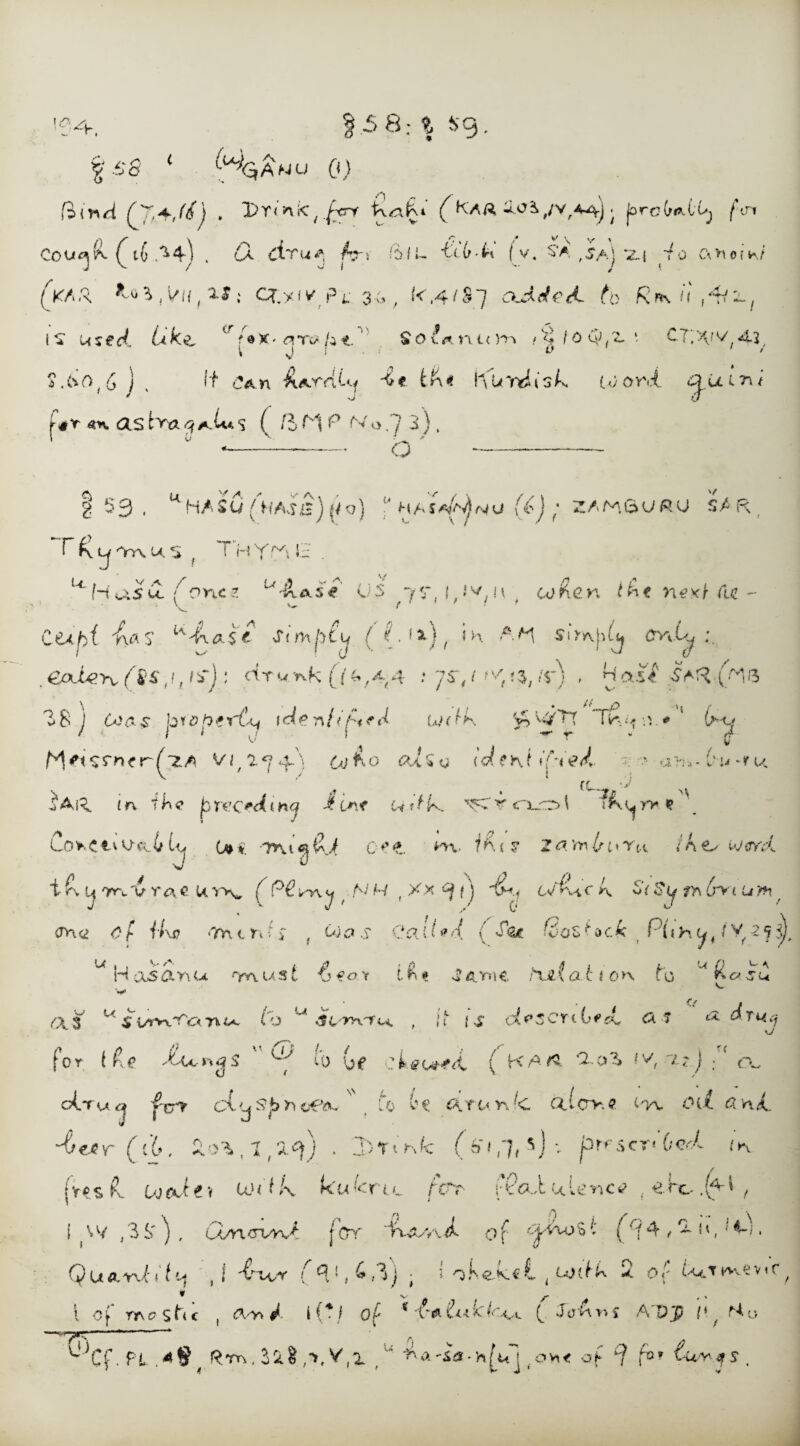 104. § 58: § 59.
§ 58 (u)QÂNU (1)
Bind (7,4,16). Drink, for ḫaḫi (KAR 203, IV, 44); probably for
cough (ib. 34). A drug for (v. SA, 5A) 21 to anoint
(KAR 203, VII, 25; CT. XIV Pl. 36, K. 4187 added to Rm ii, 412,
is used like "fox-grape" Solanum, § 10 Q, 2: CT. XIV, 43,
S. 60, 6). It can hardly be the Kurdish word quini
for an astragalus (BMP No. 73).
§ 59. ᵘHAŠÛ (HAŠÊ) (70) ᵘHAŠA(N)NU (6); ZAMBURU ŠAR,
Thymus, THYME.
ᵘḪašû (once ᵘḫašê US 75, 1, IV, 11, when the next re-
ceipt has ᵘḫašê simply (l. 12), in AM simply only:
eaten (88, 1, 15): drunk (14, 4, 4: 75, 1 IV, 13, 15), Ḫašê ŠAR (MB
38) was properly identified with Thym." by
Meissner (ZA VI, 294) who also identified za-am-bu-ru
ŠAR in the preceding line with "Thyme".
Conceivably we might see in this zamburu the word
thymbraeum (Pliny, NH, XX 91) by which Sisymbrium,
one of the mints, was called (See Bostock, Pliny, IV, 293).
ᵘḪašânu must bear the same relation to ᵘḫašû
as ᵘšumrânu to ᵘšimru, it is described as "a drug
for the lungs" ① to be chewed (KAR 203 IV, 22); "a
drug for dyspnoea", to be drunk alone in oil and
beer (ib. 203, I, 29). Drink (51, 7, 5): prescribed in
fresh water with kukru for flatulence, etc. (41,
1, IV, 35), Anoint for hand of ghost (94, 2 ii, 14).
Quantity, 1 bur (91, 6, 3); 1 shekel, with 2 of lu.Tim.evir,
1 of mastic, and 1(?) of ᵘbalukku (Johns ADD ii, No
① Cf. Pl. 49, Rm. 328, r. V, 2, ᵘḫa-ša-n[u], one of 9 for lungs.